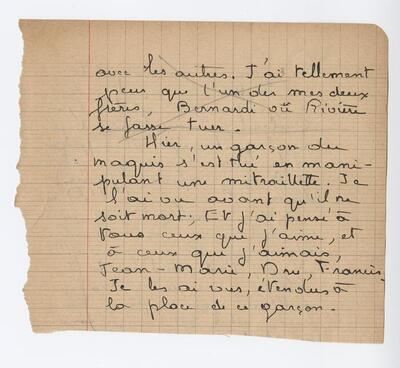 avec les autres. J'ai tellement
peur que l'un des mes deux
frères, Bernardi où Rivière
se fasse tuer.
Hier, un garçon du
maquis s'est tué en mani-
pulant une mitraillette. Je
l'ai vu avant qu'il ne
soit mort; Et j'ai pensé à
tous ceux que j'aime, et
à ceux que j'aimais,
Jean-Marie, Dru, Francis.
Je les ai vus, étendus à
la place de ce garçon.